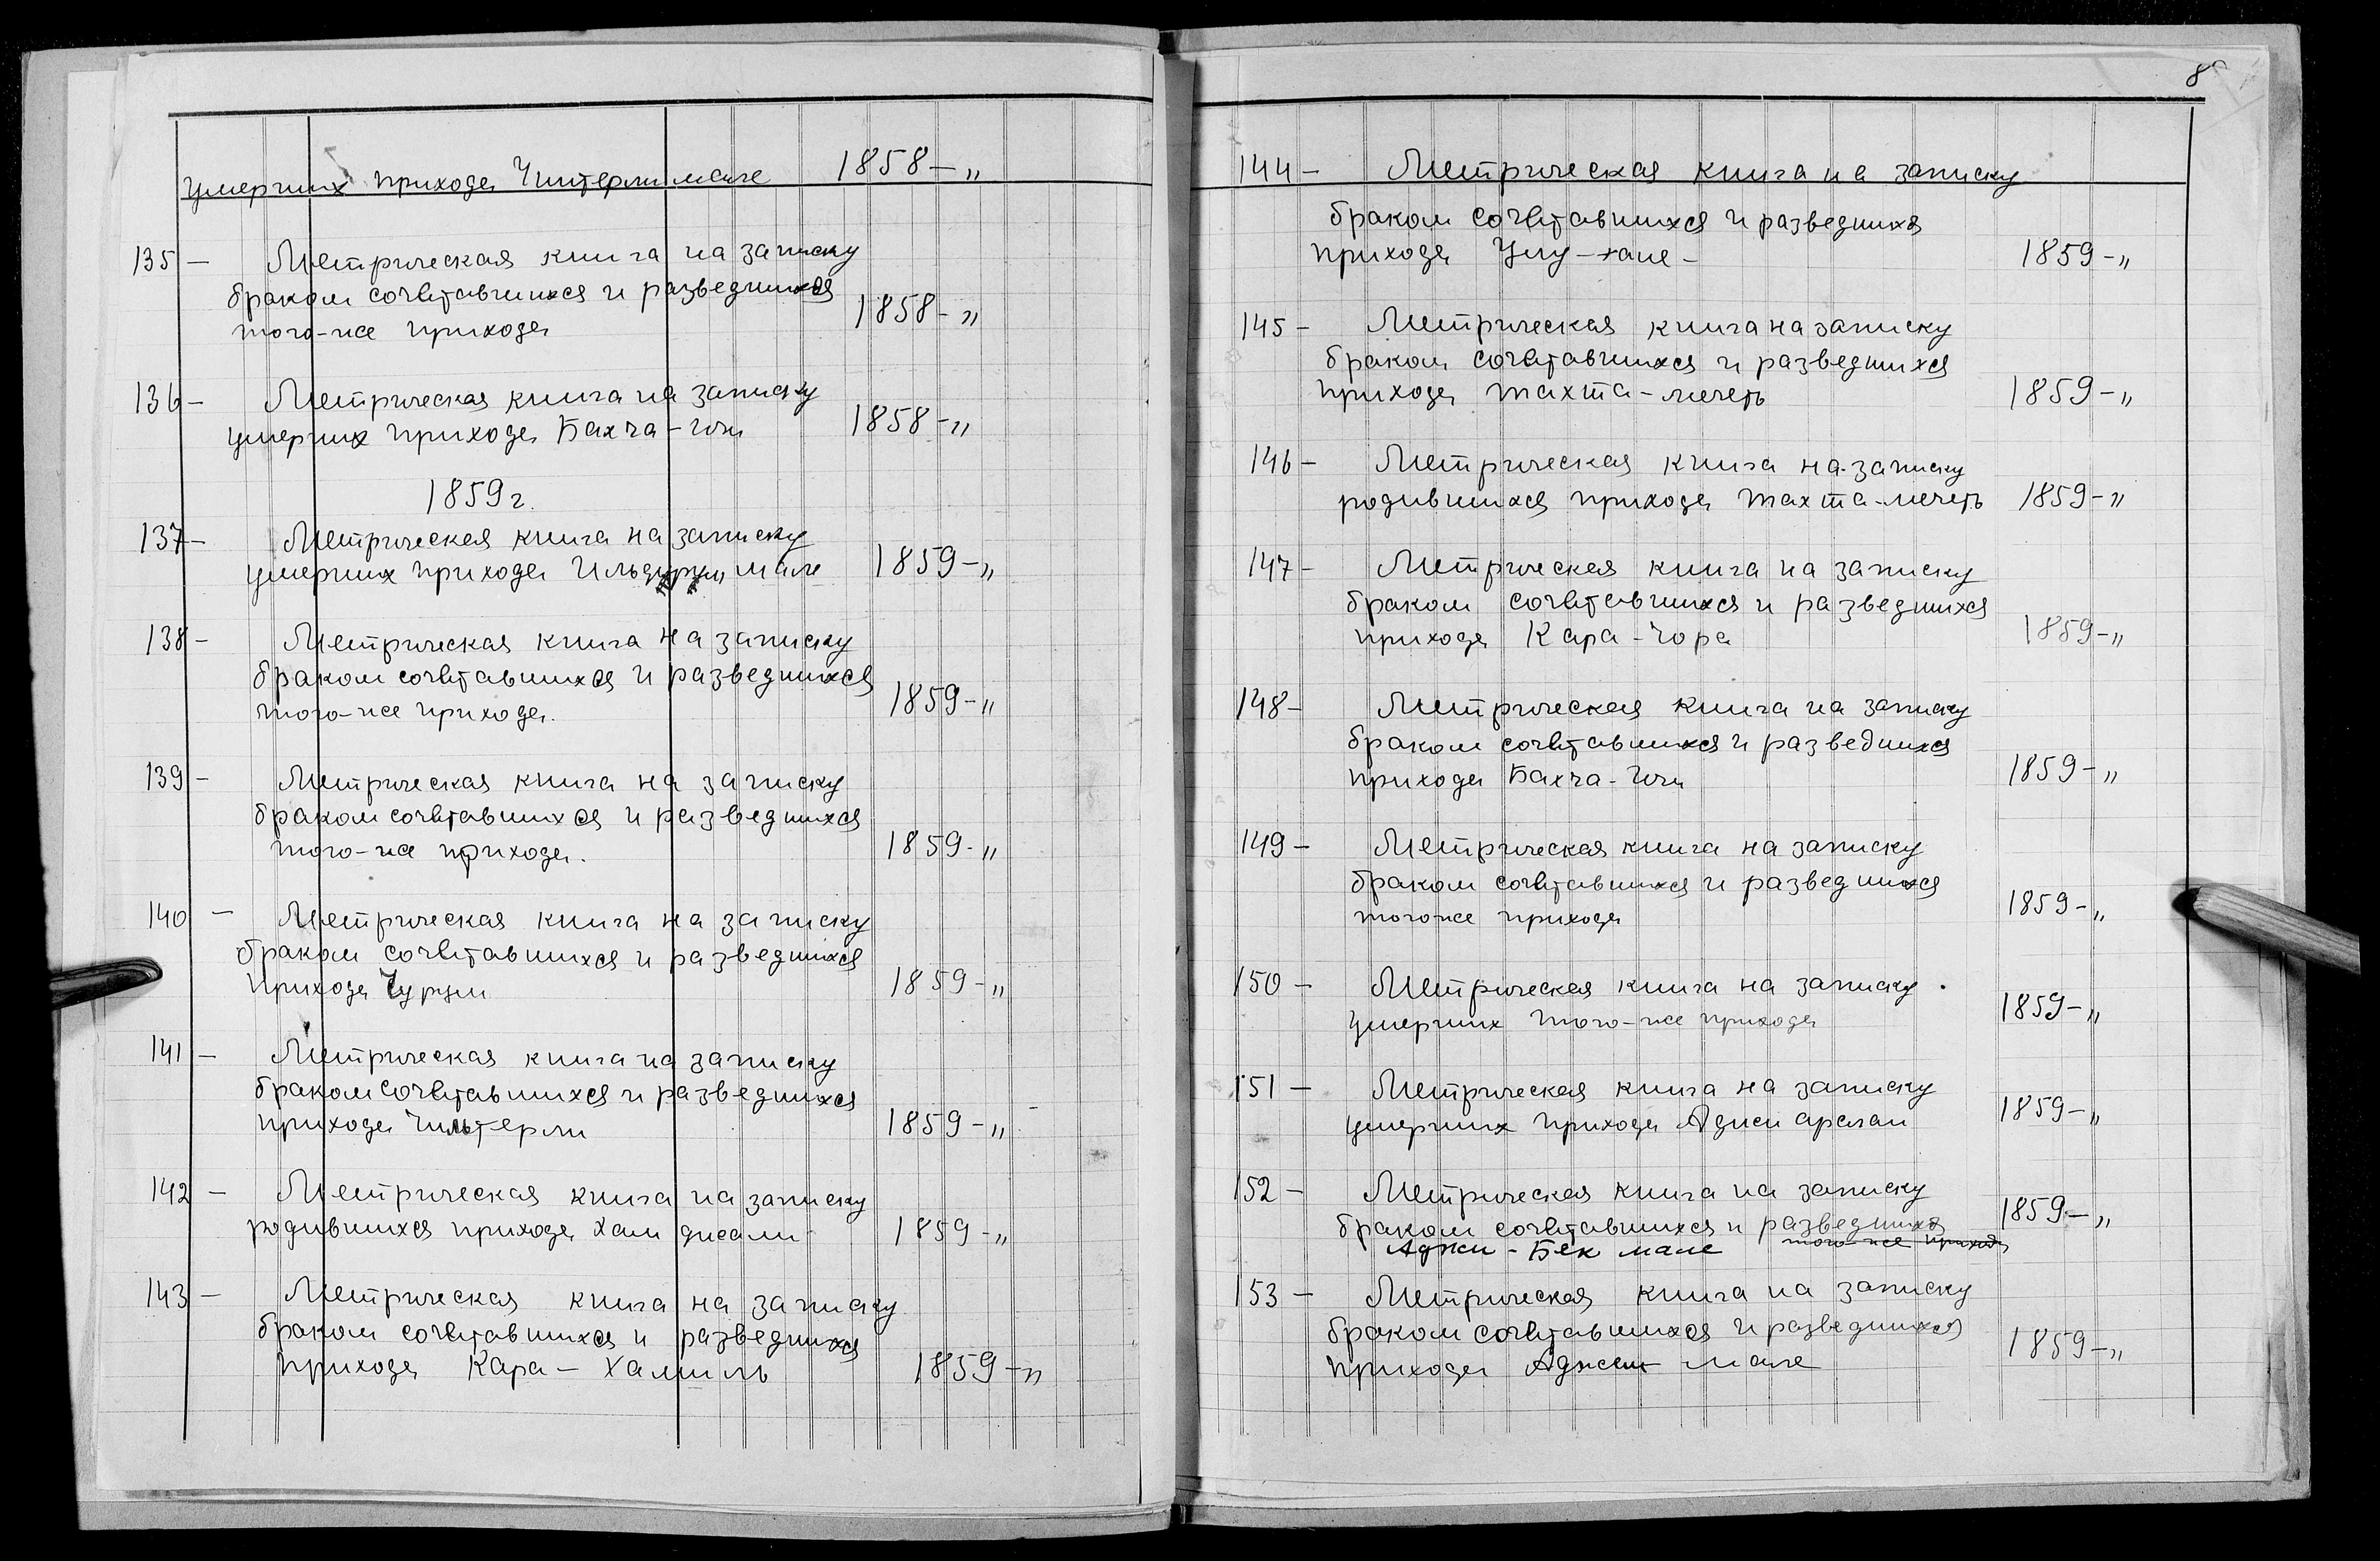 умерших прихода Читерли мале 1858-"
135- Метрическая книга на записку
браком сочетавшихся и разведшихся
того-же прихода 1858-"
136- Метрическая книга на записку
умерших прихода Бахча-Эли 1858-"
1859 г.
137- Метрическая книга на записку
умерших прихода мале 1859-"
138- Метрическая книга на записку
браком сочетавшихся и разведшихся
того-же прихода. 1859-"
139- Метрическая книга на записку
браком сочетавшихся и разведшихся
того-же прихода. 1859-"
140 - Метрическая книга на записку
браком сочетавшихся и разведшихся
прихода 1859-"
141- Метрическая книга на записку
браком сочетавшихся и разведшихся
прихода Чильтерли 1859-"
142 - Метрическая книга на записку
родившихся прихода Хан джами 1859-"
143- Метрическая книга на записку
браком сочетавшихся и разведшихся
прихода Кара-Халиль 1859-"
8
144- Метрическая книга на записку
браком сочетавшихся и разведшихся
прихода 1859-"
145- Метрическая книга на записку
браком сочетавшихся и разведшихся
прихода тахта-мечеть 1859-"
146- Метрическая книга на записку
родившихся прихода тахта-мечеть 1859-"
147- Метрическая книга на записку
браком сочетавшихся и разведшихся
прихода Кара-Чора 1859-"
148- Метрическая книга на записку
браком сочетавшихся и разведшихся
прихода Бахча-Эли 1859-"
149- Метрическая книга на записку
браком сочетавшихся и разведшихся
того-же прихода 1859-"
150- Метрическая книга на записку
умерших того-же прихода 1859-"
151- Метрическая книга на записку
умерших прихода Аджи арслан 1859-"
152- Метрическая книга на записку
браком сочетавшихся и разведшихся 1859-"
того-же прихода
Аджи-Бек мале
153- Метрическая книга на записку
браком сочетавшихся и разведшихся
прихода Аджи мале 1859-"